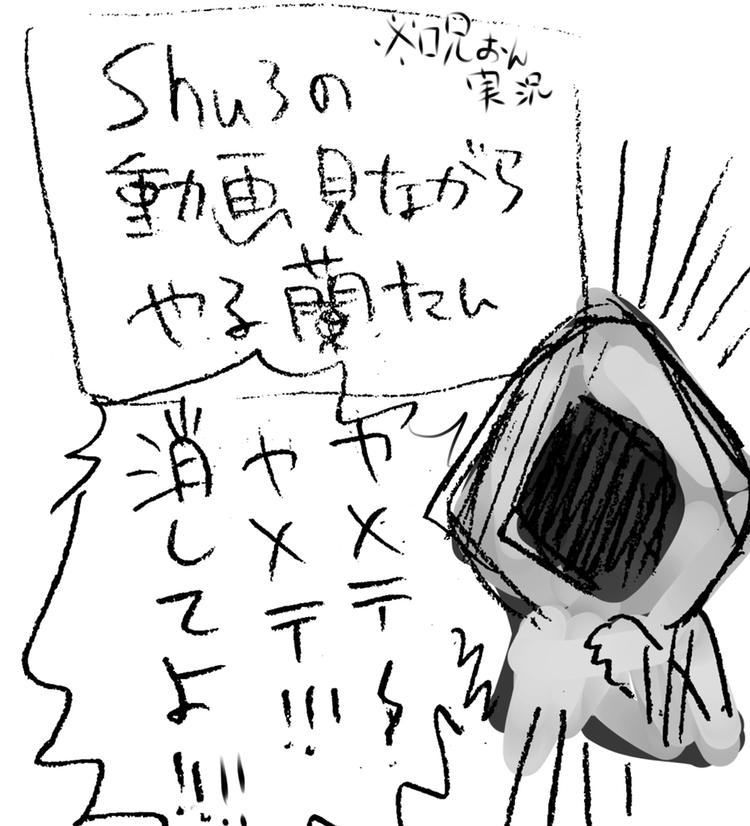 ※口兄おん
実況
Shu3の
動画見ながら
やる蘭たん
ヤメテ〜
ヤメテ!!!
消してよ!!!!